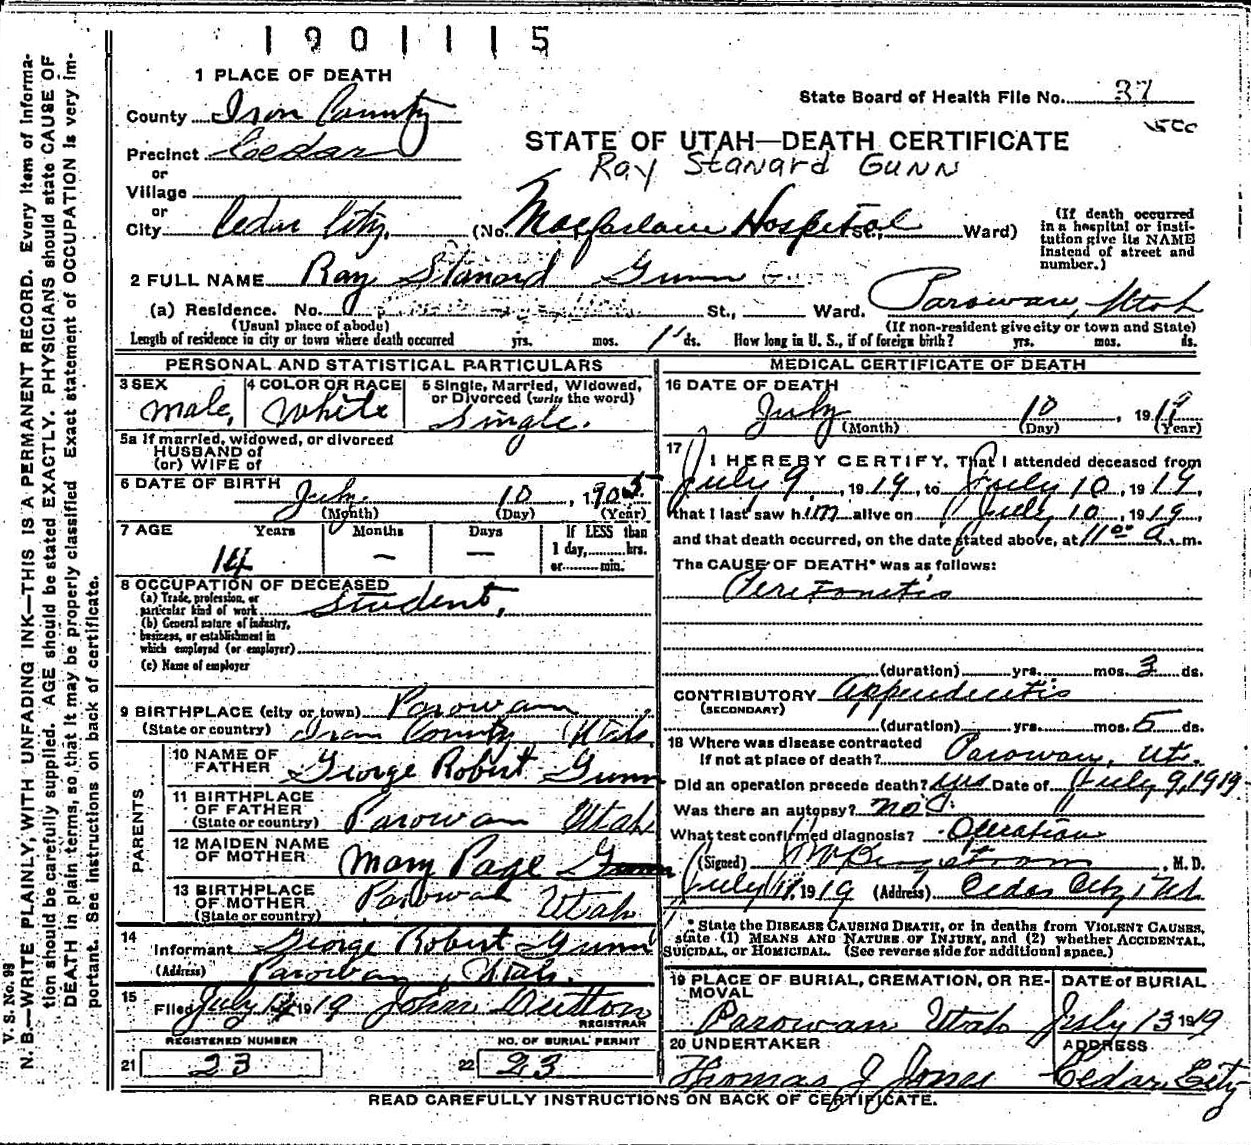 1901115
1 PLACE OF DEATH
State Board of Health File No. 37
County Iron County
STATE OF UTAH—DEATH CERTIFICATE
Precinct Cedar
Ray Stanard Gunn
or
Village
or
City Cedar City, (No. Macfarlane Hospital St., Ward)
(If death occurred in a hospital or insti-
tution give its NAME
instead of street and
number.)
2 FULL NAME Ray Stanard Gunn
(a) Residence. No. St., Ward. Parowan, Utah
(Usual place of abode) (If non-resident give city or town and State)
Length of residence in city or town where death occurred yrs. mos. 1 ds. How long in U. S., if of foreign birth? yrs. mos. ds.
PERSONAL AND STATISTICAL PARTICULARS
3 SEX 4 COLOR OR RACE 5 Single, Married, Widowed,
or Divorced (write the word)
Male, White Single.
5a If married, widowed, or divorced
HUSBAND of
(or) WIFE of
6 DATE OF BIRTH July 10, 1905
(Month) (Day) (Year)
7 AGE Years Months Days If LESS than
1 day, hrs.
or min.
14 — —
8 OCCUPATION OF DECEASED
(a) Trade, profession, or
particular kind of work Student,
(b) General nature of industry,
business, or establishment in
which employed (or employer)
(c) Name of employer
9 BIRTHPLACE (city or town) Parowan
(State or country) Iron County Utah.
PARENTS
10 NAME OF
FATHER George Robert Gunn
11 BIRTHPLACE
OF FATHER
(State or country) Parowan Utah
12 MAIDEN NAME
OF MOTHER Mary Page Gunn
13 BIRTHPLACE
OF MOTHER
(State or country) Parowan Utah
14
Informant George Robert Gunn
(Address) Parowan, Utah.
15
Filed July 1919 John
REGISTRAR
REGISTERED NUMBER NO. OF BURIAL PERMIT
21 23 22 23
MEDICAL CERTIFICATE OF DEATH
16 DATE OF DEATH
July 10, 1919
(Month) (Day) (Year)
17
I HEREBY CERTIFY, That I attended deceased from
July 9, 1919, to July 10, 1919,
that I last saw him alive on July 10, 1919,
and that death occurred, on the date stated above, at 11 00 a. m.
The CAUSE OF DEATH* was as follows:
Peritonitis
(duration) yrs. mos. 3 ds.
CONTRIBUTORY Appendicitis
(SECONDARY)
(duration) yrs. mos. 5 ds.
18 Where was disease contracted
If not at place of death? Parowan, Ut.
Did an operation precede death? yes Date of July 9, 1919
Was there an autopsy? no
What test confirmed diagnosis? Operation
(Signed) , M. D.
July 11, 1919 (Address) Cedar City, Ut
* State the DISEASE CAUSING DEATH, or in deaths from VIOLENT CAUSES,
state (1) MEANS AND NATURE OF INJURY, and (2) whether ACCIDENTAL,
SUICIDAL, or HOMICIDAL. (See reverse side for additional space.)
19 PLACE OF BURIAL, CREMATION, OR RE-
MOVAL
DATE of BURIAL
Parowan Utah July 13 1919
20 UNDERTAKER ADDRESS
Thomas J Jones Cedar City
READ CAREFULLY INSTRUCTIONS ON BACK OF CERTIFICATE.
V. S. No. 99
N. B.—WRITE PLAINLY, WITH UNFADING INK—THIS IS A PERMANENT RECORD. Every item of informa-
tion should be carefully supplied. AGE should be stated EXACTLY. PHYSICIANS should state CAUSE OF
DEATH in plain terms, so that it may be properly classified. Exact statement of OCCUPATION is very im-
portant. See instructions on back of certificate.